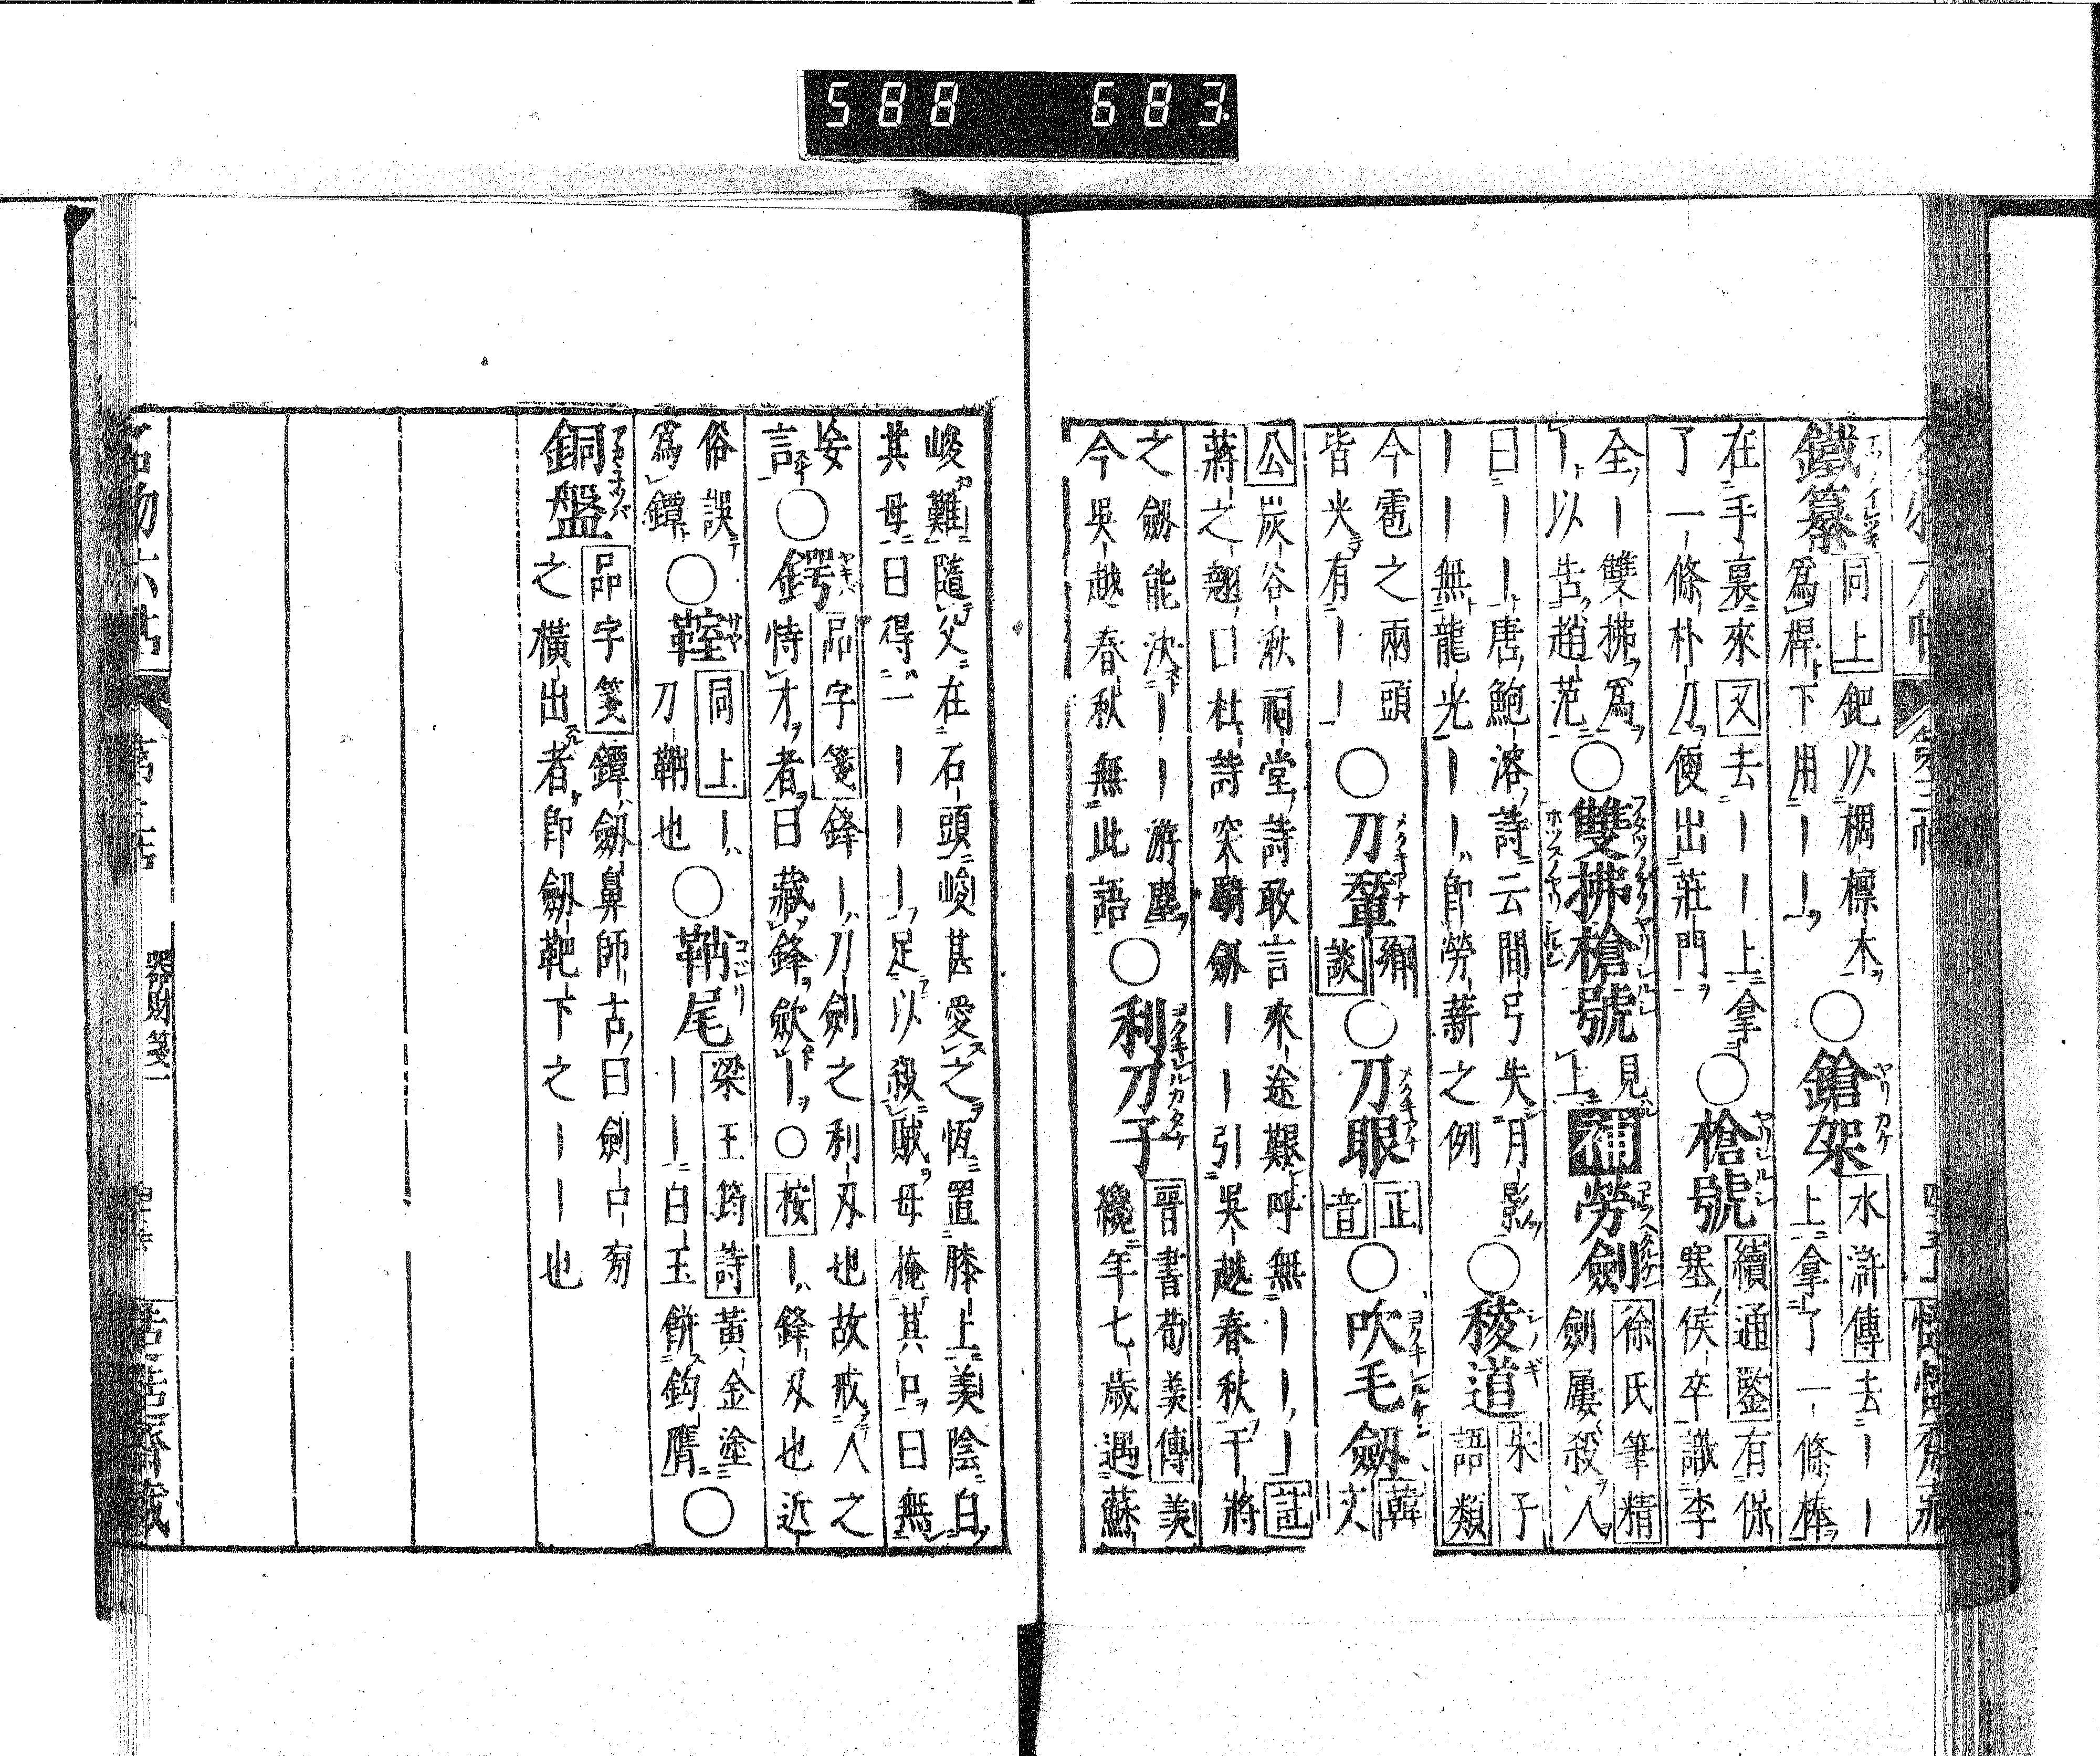 588 683
鐵纂 同上 鈀以稠檩木
爲桿下用｜｜ ○ 鎗架 水滸傳 去｜｜
上拿了一條棒
在手裏來 又 去｜｜上拿
了一條朴刀便出莊門 ○ 槍號 續通鑒 有保
塞侯卒識李
全｜雙拂爲
丁以告趙范 ○ 雙拂槍號 見上 補 勞劍 徐氏筆精
劍屢殺人
曰｜｜｜唐鮑溶詩云間弓失月影
｜｜｜無龍光｜｜即勞薪之例 ○ 稜道 朱子語類
今雹之兩頭
皆火有｜｜｜ ○ 刀䡟 鄉談 ○ 刀眼 正音 ○ 吹毛劔 韓文
公炭谷湫祠堂詩敢言來途艱呼無｜｜｜ 註
蔣之翹曰杜詩突騎劔｜｜｜引吳越春秋干將
之劔能決｜｜｜游塵
今吳越春秋無此語 ○ 利刀子 晉書荀羨傳 羨
纔年七歲遇蘇
峻難隨父在石頭峻甚愛之恆置膝上羨陰白
其母曰得一｜｜｜足以殺賊母掩其口曰無
妄言 ○ 鍔 品字箋 鋒｜刀劍之利刄也故戒人之
恃才者曰藏鋒歛｜○ 按 ｜鋒刄也近
俗誤
爲鐔 ○ 鞚 同上 ｜
刀鞘也 ○ 鞘尾 梁王筠詩 黃金塗
｜｜白玉餅鈎膺 ○
銅盤 品字箋 鐔劔鼻師古曰劍口旁
之橫出者即劔靶下之｜｜也
名物六帖 第二帖 器財箋一